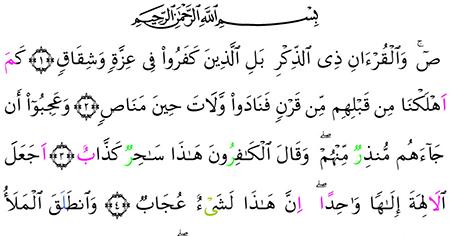 بِسْمِ اللَّهِ الرَّحْمَٰنِ الرَّحِيمِ
صٓ ۚ وَالْقُرْءَانِ ذِى الذِّكْرِ بَلِ الَّذِينَ كَفَرُواْ فِى عِزَّةٍ وَشِقَاقٍ ﴿١﴾ كَمَ
اَهْلَكْنَا مِن قَبْلِهِم مِّن قَرْنٍ فَنَادَواْ وَّلَاتَ حِينَ مَنَاصٍ ﴿٢﴾ وَعَجِبُوٓاْ أَن
جَآءَهُم مُّنذِرٌ مِّنْهُمْ ۖ وَقَالَ الْكَٰفِرُونَ هَٰذَا سَٰحِرٌ كَذَّابٌ ﴿٣﴾ اَجَعَلَ
الَالِهَةَ إِلَٰهًا وَٰحِدًا ۖ اِنَّ هَٰذَا لَشَىْءٌ عُجَابٌ ﴿٤﴾ وَانطَلَقَ الْمَلَأُ